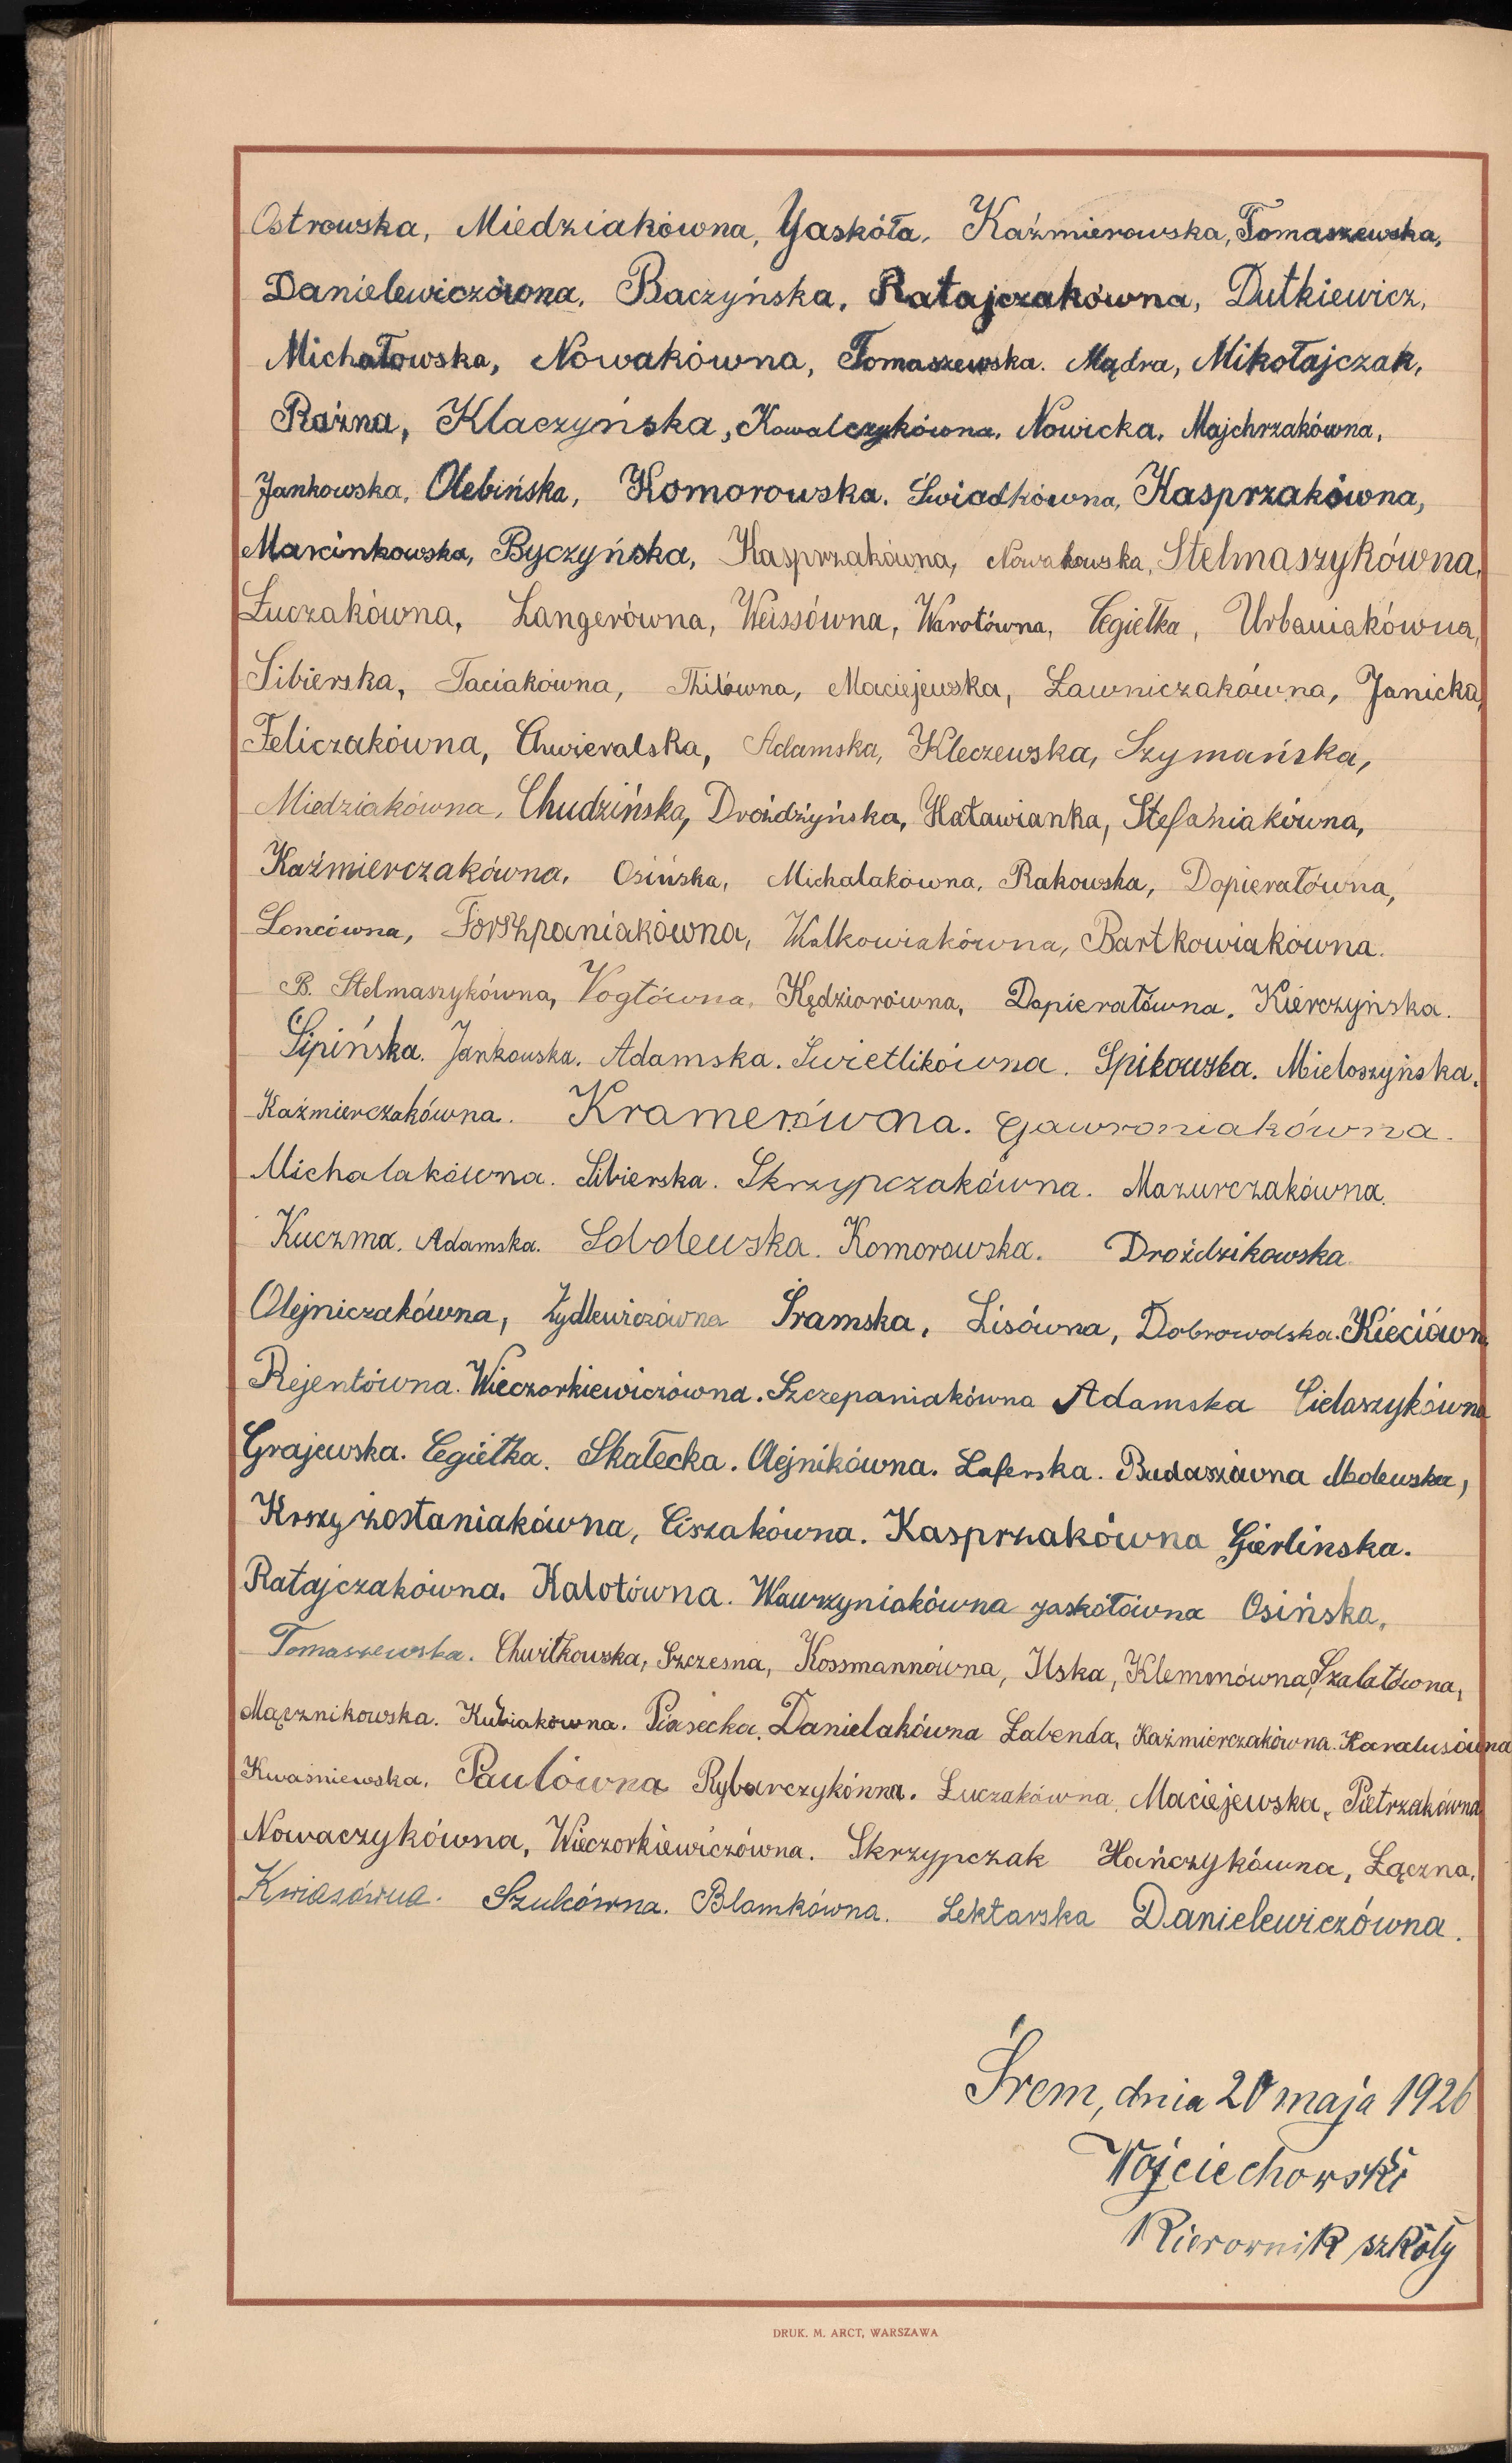 Ostrowska, Miedziakówna, Jaskóła, Kaźmierowska, Tomaszewska,
Danielewiczówna, Baczyńska, Ratajczakówna, Dutkiewicz,
Michałowska, Nowakówna, Tomaszewska. Mądra, Mikołajczak,
Raźna, Klaczyńska, Kowalczykówna, Nowicka, Majchrzakówna,
Jankowska, Olebińska, Komorowska. Świadkówna, Kasprzakówna,
Marcinkowska, Byczyńska, Kasprzakówna, Nowakowska, Stelmaszykówna,
Łuczakówna, Langerówna, Weissówna, Warotówna, Cegiełka, Urbaniakówna,
Sibierska, Taciakówna, Thilówna, Maciejewska, Ławniczakówna, Janicka,
Feliczakówna, Chwieralska, Adamska, Kleczewska, Szymańska,
Miedziakówna, Chudzińska, Droździyńska, Hatawianka, Stefaniakówna,
Kaźmierczakówna, Osińska, Michalakówna, Rakowska, Dopierałówna,
Loncówna, Forszpaniakówna, Walkowiakówna, Bartkowiakówna.
B. Stelmaszykówna, Vogtówna, Kędziorówna, Dopierałówna. Kierczyńska.
Lipińska. Jankowska. Adamska. Świetlikówna. Spikowska. Mieloszyńska.
Kaźmierczakówna. Kramerówna. Gawroniakówna.
Michalakówna. Sibierska. Skrzypczakówna. Mazurczakówna.
Kuczma. Adamska. Sobolewska. Komorowska. Droździkowska.
Olejniczakówna, Żydlewiczówna Śramska, Lisówna, Dobrowolska. Kieciówn
Rejentówna. Wieczorkiewiczówna. Szczepaniakówna Adamska Cielaszykówna
Grajewska. Cegiełka. Skałecka. Olejnikówna. Laferska. Budaszówna Molewska,
Krszyżostaniakówna, Ciszakówna. Kasprzakówna Gierlinska.
Ratajczakówna. Kalotówna. Wawrzyniakówna Jaskółówna Osińska,
Tomaszewska. Chwiłkowska, Szczesna, Kossmannówna, Ilska, Klemmówna, Szalatówna,
Mącznikowska. Kubiakówna. Piasecka. Danielakówna Łabenda, Kaźmierczakówna. Karalusówna
Kwaśniewska. Paulówna Rybarczykówna. Łuczakówna, Maciejewska, Pietrzakówna
Nowaczykówna, Wieczorkiewiczówna. Skrzypczak Hańczykówna, Łączna,
Kwiasówna. Szulcówna. Blamkówna. Lektarska Danielewiczówna.
Śrem, dnia 20 maja 1926
Wojciechowski
Kierownik szkoły
DRUK. M. ARCT, WARSZAWA